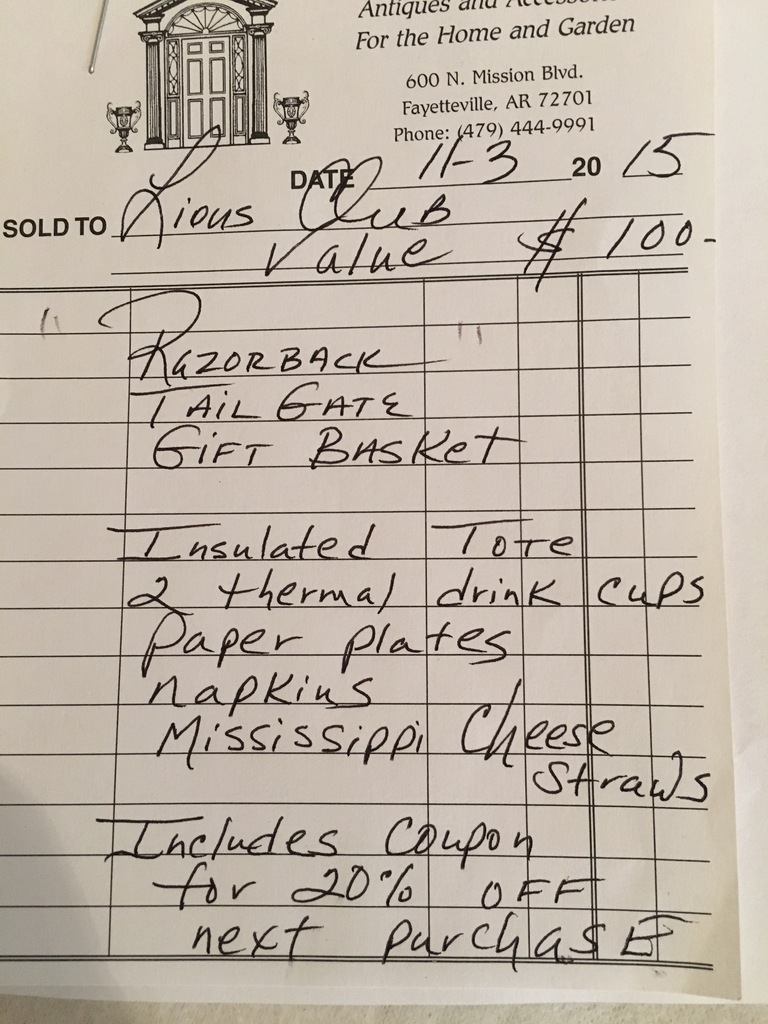 Antiques and
For the Home and Garden
600 N. Mission Blvd.
Fayetteville, AR 72701
Phone: (479) 444-9991
DATE 11-3 20 15
SOLD TO Lions Club
Value $ 100-
" RAZORBACK "
TAIL GATE
GIFT BASKet
Insulated Tote
2 thermal drink cups
Paper plates
napkins
Mississippi Cheese
Straws
Includes Coupon
for 20% OFF
next purchasE